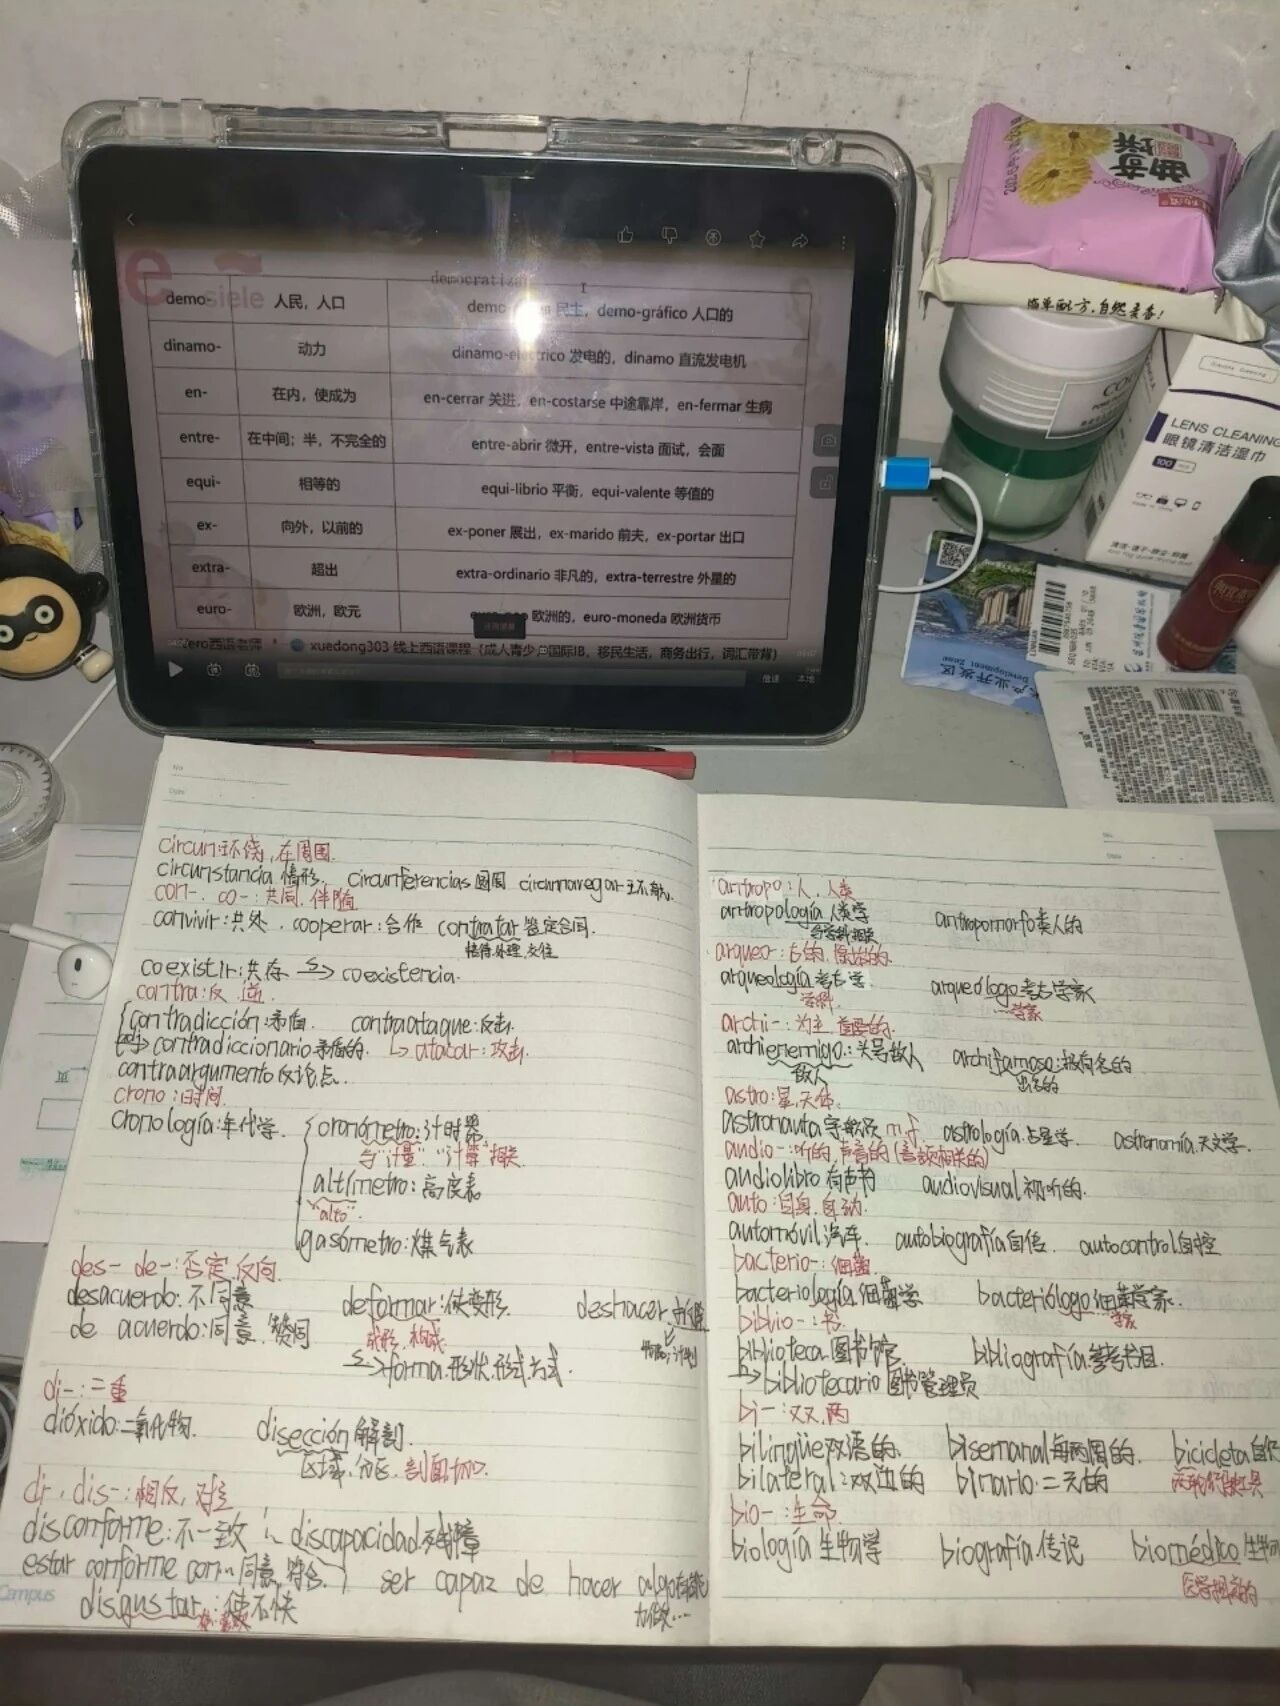 democratizar
e siele
demo- 人民，人口 民主，demo-gráfico 人口的
dinamo- 动力 dinamo-eléctrico 发电的，dinamo 直流发电机
en- 在内，使成为 en-cerrar 关进，en-costarse 中途靠岸，en-fermar 生病
entre- 在中间；半，不完全的 entre-abrir 微开，entre-vista 面试，会面
equi- 相等的 equi-librio 平衡，equi-valente 等值的
ex- 向外，以前的 ex-poner 展出，ex-marido 前夫，ex-portar 出口
extra- 超出 extra-ordinario 非凡的，extra-terrestre 外星的
euro- 欧洲，欧元 欧洲的，euro-moneda 欧洲货币
西语老师 xuedong303 线上西语课程（成人青少，国际IB，移民生活，商务出行，词汇带背）
倍速 本地
曲奇
简单配方，自然美香！
LENS CLEANING
眼镜清洁湿巾
100
Development Zone
No
Date
circun:环绕,在周围.
circunstancia 情形. circunferencias 圆周 circunnavegar
con-. co-:共同,伴随
convivir:共处. cooperar:合作 contratar 签定合同.
coexistir:共存 → coexistencia.
contra:反,逆
contradicción:矛盾. contraataque:反击.
contradiccionario 矛盾的. ↳ atacar:攻击.
contraargumento 反论点.
crono:时间
cronología:年代学. cronómetro:计时器
与"计量""计算"相关
altímetro:高度表
"alto".
gasómetro:煤气表
des- de-:否定,反向.
desacuerdo:不同意 deformar:使变形. deshacer
de acuerdo:同意,赞同 成形,构成
→ forma.形状.形式.方式.
di-:二重
dióxido:二氧化物. disección 解剖.
区域,分区. 剖面,切口.
di, dis-:相反,对立
disconforme:不一致 discapacidad 残障
estar conforme con 同意,符合 ser capaz de hacer algo
disgustar:使不快
Campus
antropo:人,人类
antropología 人类学 antropomorfo 类人的
与学科相关
arqueo:古的,原始的.
arqueología 考古学. arqueólogo 考古学家
学科. 学家
archi-:为主,首要的.
archienemigo:头号敌人 archifamoso:极有名的
敌人 出名的
astro:星,天体.
astronauta 宇航员 m.f. astrología.占星学. astronomía.天文学.
audio-:听的,声音的(音频相关的)
audiolibro 有声书 audiovisual 视听的.
auto:自身,自动.
automóvil 汽车. autobiografía 自传. autocontrol 自控
bacterio-:细菌.
bacteriología 细菌学 bacteriólogo 细菌学家.
学家
biblio-:书.
biblioteca 图书馆. bibliografía 参考书目.
→ bibliotecario 图书管理员
bi-:双,两
bilingüe 双语的. bisemanal 每两周的. bicicleta 自行
bilateral:双边的 binario.二元的
bio-:生命.
biología 生物学 biografía 传记 biomédico 生物
医学相关的